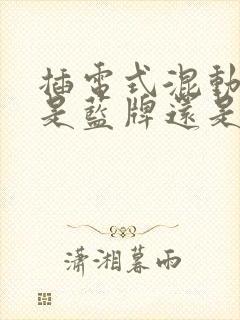 插電式混動
是藍牌還是
瀟湘暮雨